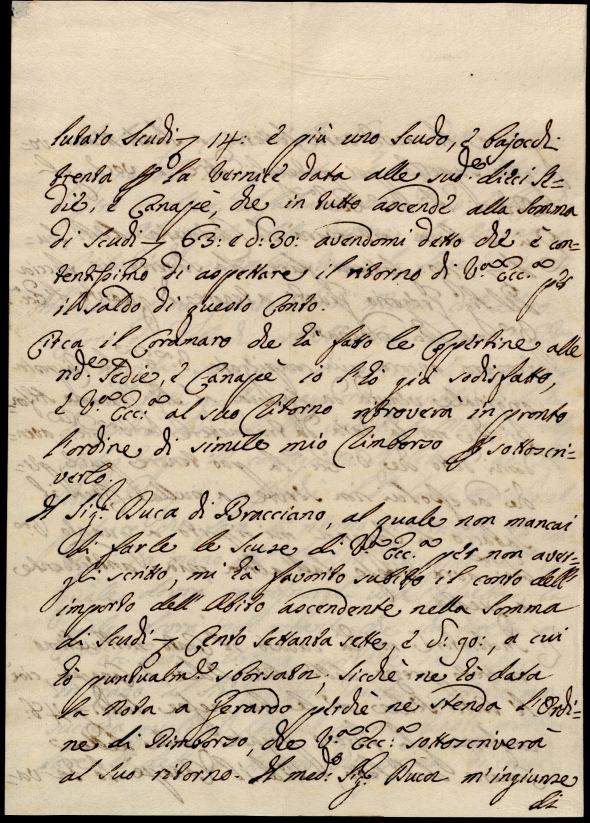 lutato Scudi 14: e più uno scudo, e bajocchi
trenta p la vernice data alle sud.e dieci Se=
die, e Canapè, che in tutto ascende alla Somma
di Scudi 63: e d: 30: avendomi detto che è con=
tentissimo di aspettare il ritorno di V.ra Ecc.za per
il saldo di questo Conto.
Circa il Coramaro che hà fatto le Copertine alle
rid.e Sedie, e Canapè io l'hò già sodisfatto,
e V.ra Ecc.za al suo Ritorno ritroverà in pronto
l'ordine di simile mio Rimborso p sottoscri=
verlo.
Il Sig.r Duca di Bracciano, al quale non mancai
di farle le scuse di V.ra Ecc.za per non aver=
gli scritto, mi hà favorito subito il conto dell'
importo dell'Abito ascendente nella Somma
di Scudi Cento settanta sette, e d: 90:, a cui
hò puntualm.te sborsata; sicchè ne hò data
la Nota a Gerardo perchè ne stenda l'Ordi=
ne di Rimborso, che V.ra Ecc.za sottoscriverà
al suo ritorno. Il med.o Sig.r Duca m'ingiunse
di